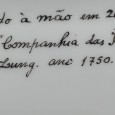 do à mão em 2
"Companhia das
Lung. ane 1750.